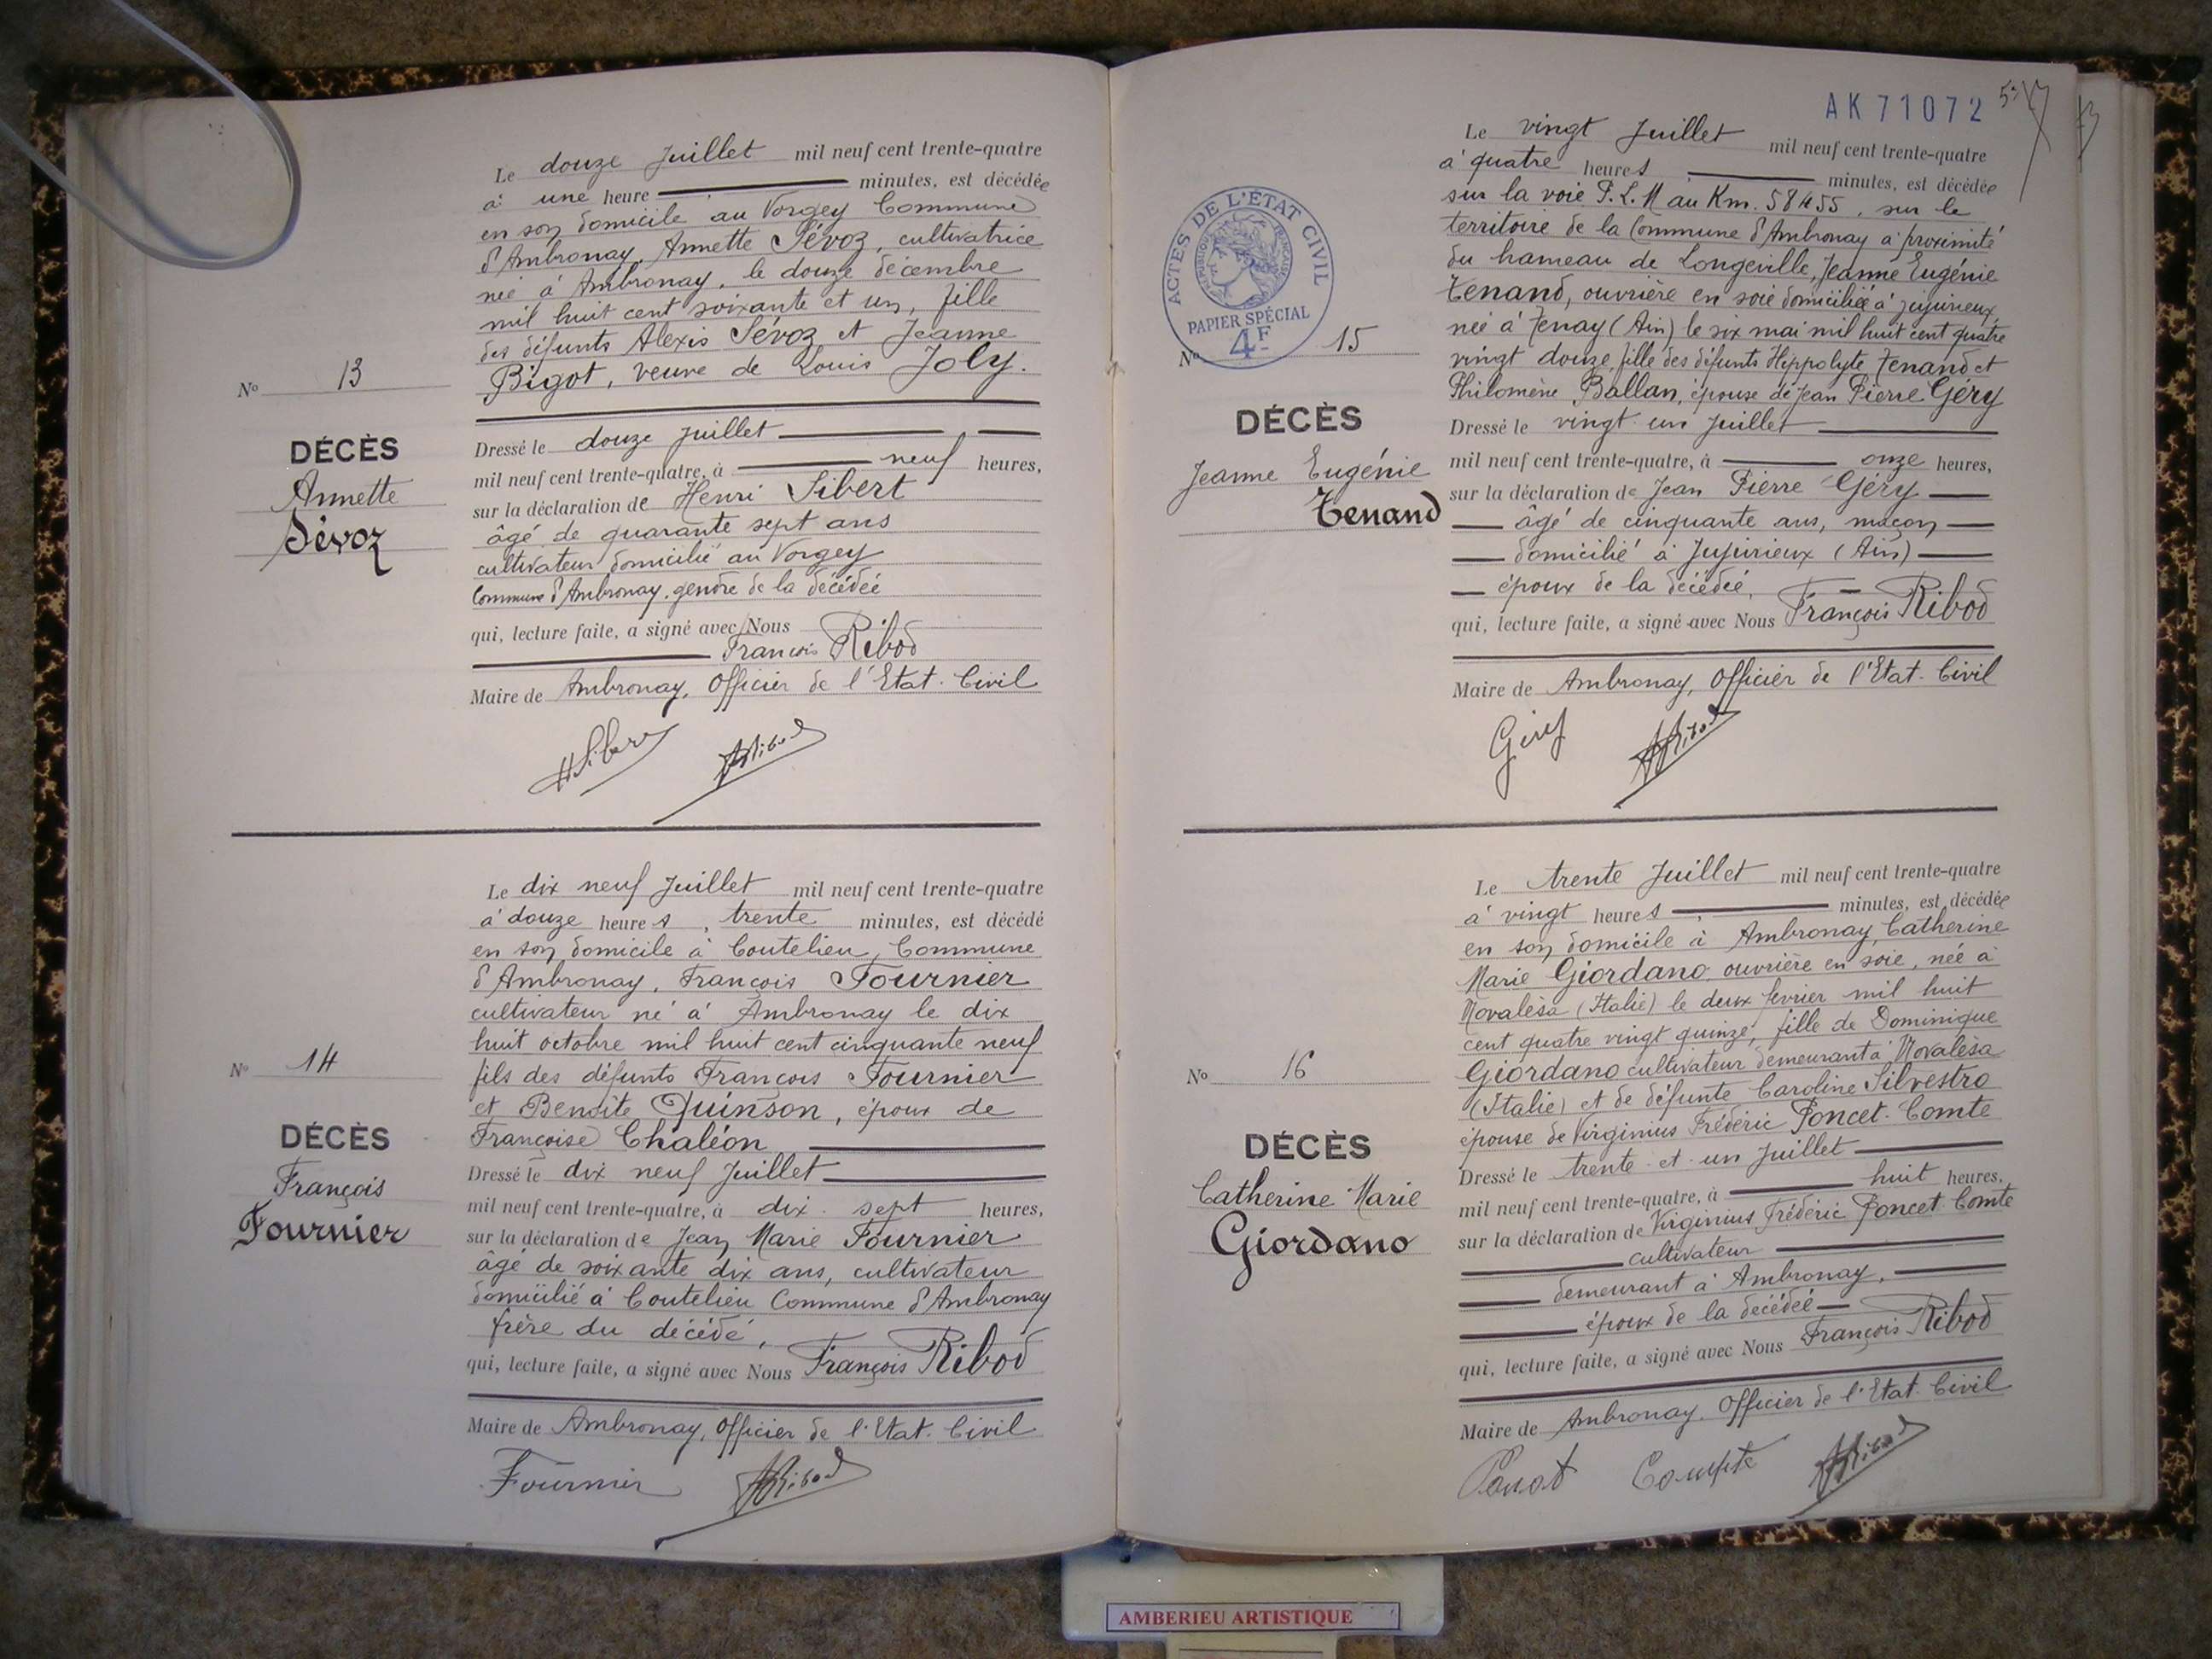 Le douze Juillet mil neuf cent trente-quatre
à une heure minutes, est décédée
en son domicile au Vorgey Commune
d'Ambronay, Annette Sévoz, cultivatrice
née à Ambronay, le douze décembre
mil huit cent soixante et un, fille
des défunts Alexis Sévoz et Jeanne
Bigot, veuve de Louis Joly.
No 13
DÉCÈS
Annette
Sévoz
Dressé le douze Juillet
mil neuf cent trente-quatre, à neuf heures,
sur la déclaration de Henri Sibert
âgé de quarante sept ans
cultivateur domicilié au Vorgey
Commune d'Ambronay, gendre de la décédée
qui, lecture faite, a signé avec Nous
François Ribod
Maire de Ambronay, Officier de l'Etat-Civil
HSibert ARibod
Le dix neuf Juillet mil neuf cent trente-quatre
à douze heures, trente minutes, est décédé
en son domicile à Coutelieu, Commune
d'Ambronay, François Fournier
cultivateur né à Ambronay le dix
huit octobre mil huit cent cinquante neuf
fils des défunts François Fournier
et Benoîte Quinson, époux de
Françoise Chaléon
No 14
DÉCÈS
François
Fournier
Dressé le dix neuf Juillet
mil neuf cent trente-quatre, à dix-sept heures,
sur la déclaration de Jean Marie Fournier
âgé de soixante dix ans, cultivateur
domicilié à Coutelieu Commune d'Ambronay
frère du décédé,
qui, lecture faite, a signé avec Nous François Ribod
Maire de Ambronay, Officier de l'Etat-Civil
Fournier ARibod
AK 71072
Le vingt Juillet mil neuf cent trente-quatre
à quatre heures minutes, est décédée
sur la voie P.L.M au Km. 58455, sur le
territoire de la Commune d'Ambronay à proximité
du hameau de Longeville, Jeanne Eugénie
Tenand, ouvrière en soie domiciliée à Jujurieux
née à Tenay (Ain) le six mai mil huit cent quatre
vingt douze, fille des défunts Hippolyte Tenand et
Philomène Ballan, épouse de Jean Pierre Géry
ACTES DE L'ÉTAT CIVIL
RÉPUBLIQUE FRANÇAISE
PAPIER SPÉCIAL
4F
No 15
DÉCÈS
Jeanne Eugénie
Tenand
Dressé le vingt-un Juillet
mil neuf cent trente-quatre, à onze heures,
sur la déclaration de Jean Pierre Géry
âgé de cinquante ans, maçon
domicilié à Jujurieux (Ain)
époux de la décédée,
qui, lecture faite, a signé avec Nous François Ribod
Maire de Ambronay, Officier de l'Etat-Civil
Géry ARibod
Le trente Juillet mil neuf cent trente-quatre
à vingt heures, minutes, est décédée
en son domicile à Ambronay, Catherine
Marie Giordano ouvrière en soie, née à
Novalèsa (Italie) le deux février mil huit
cent quatre vingt quinze, fille de Dominique
Giordano cultivateur demeurant à Novalèsa
(Italie) et de défunte Caroline Silvestro
épouse de Virginius Frédéric Poncet-Comte
No 16
DÉCÈS
Catherine Marie
Giordano
Dressé le trente-et-un Juillet
mil neuf cent trente-quatre, à huit heures,
sur la déclaration de Virginius Frédéric Poncet Comte
cultivateur
demeurant à Ambronay,
époux de la décédée
qui, lecture faite, a signé avec Nous François Ribod
Maire de Ambronay, Officier de l'Etat-Civil
Compte ARibod
AMBERIEU ARTISTIQUE